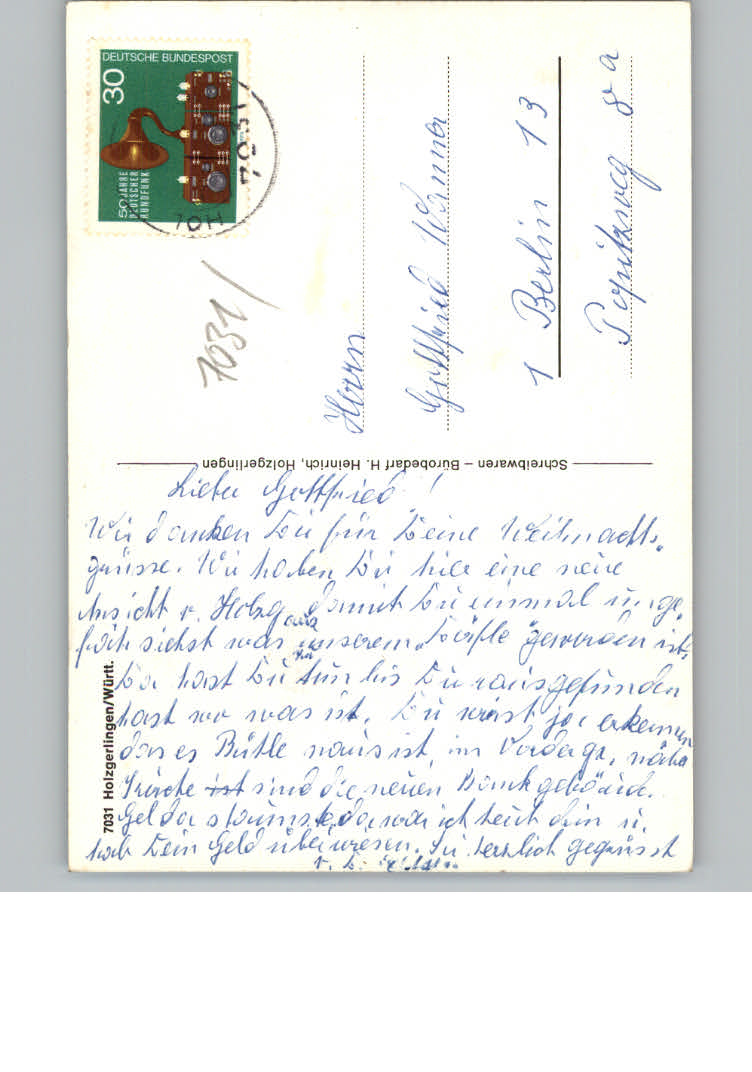 DEUTSCHE BUNDESPOST
30
50 JAHRE
DEUTSCHER
RUNDFUNK
7031
HOL
7031/
Herrn
Gottfried Werner
1 Berlin 13
Popitzweg 8a
Schreibwaren – Bürobedarf H. Heinrich, Holzgerlingen
7031 Holzgerlingen/Württ.
Lieber Gottfried!
Wir danken Dir für Deine Weihnachts-
grüsse. Wir haben Dir hier eine neue
Ansicht v. Holzg. damit Du einmal unge-
fähr siehst was aus unserem "Dörfle" geworden ist.
Da hast Du zu tun bis Du rausgefunden
hast wo was ist. Du wirst ja erkennen
das es Bühle naus ist, im Vorderge, nähe
Kirche ist sind die neuen Bankgebäude.
Gel da staunste, da war ich heut drin u.
hab Dein Geld überwiesen. Sei herzlich gegrüsst
v. D.